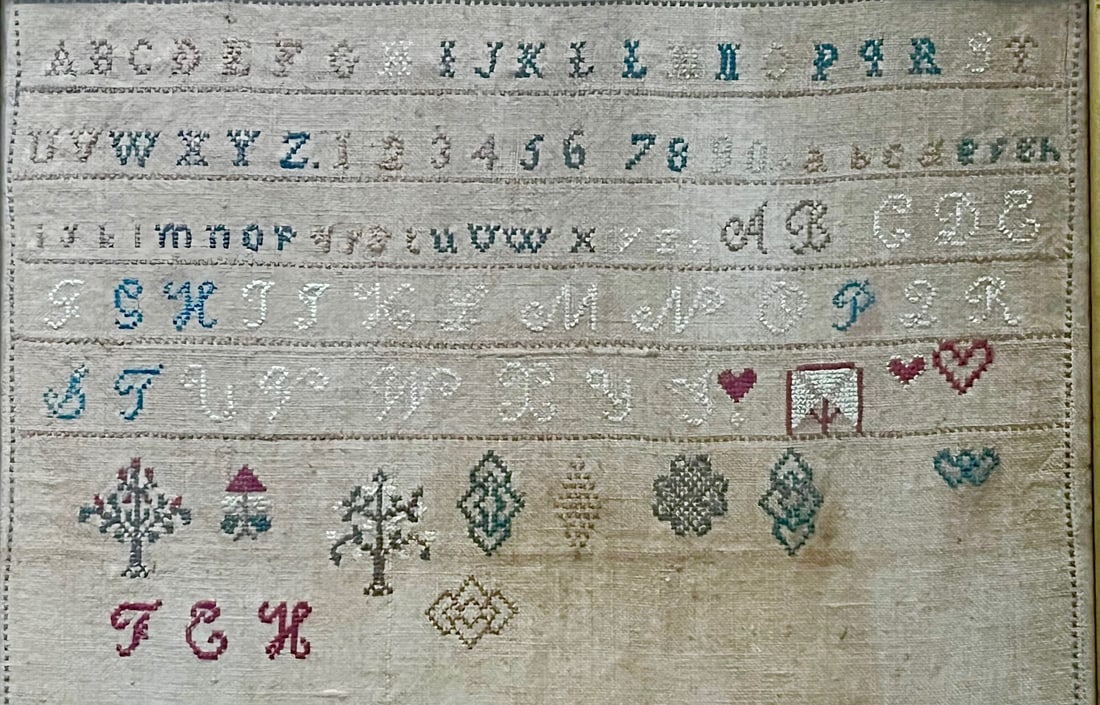 A B C D E F G H I J K L L M N O P q R S T
U V W X Y Z. 1 2 3 4 5 6 7 8 9 0. a b c d e f g h
i j k l m n o p q r s t u v w x y z. A B C D E
F G H I J K L M N O P Q R
S T U V W X Y Z.
T E H